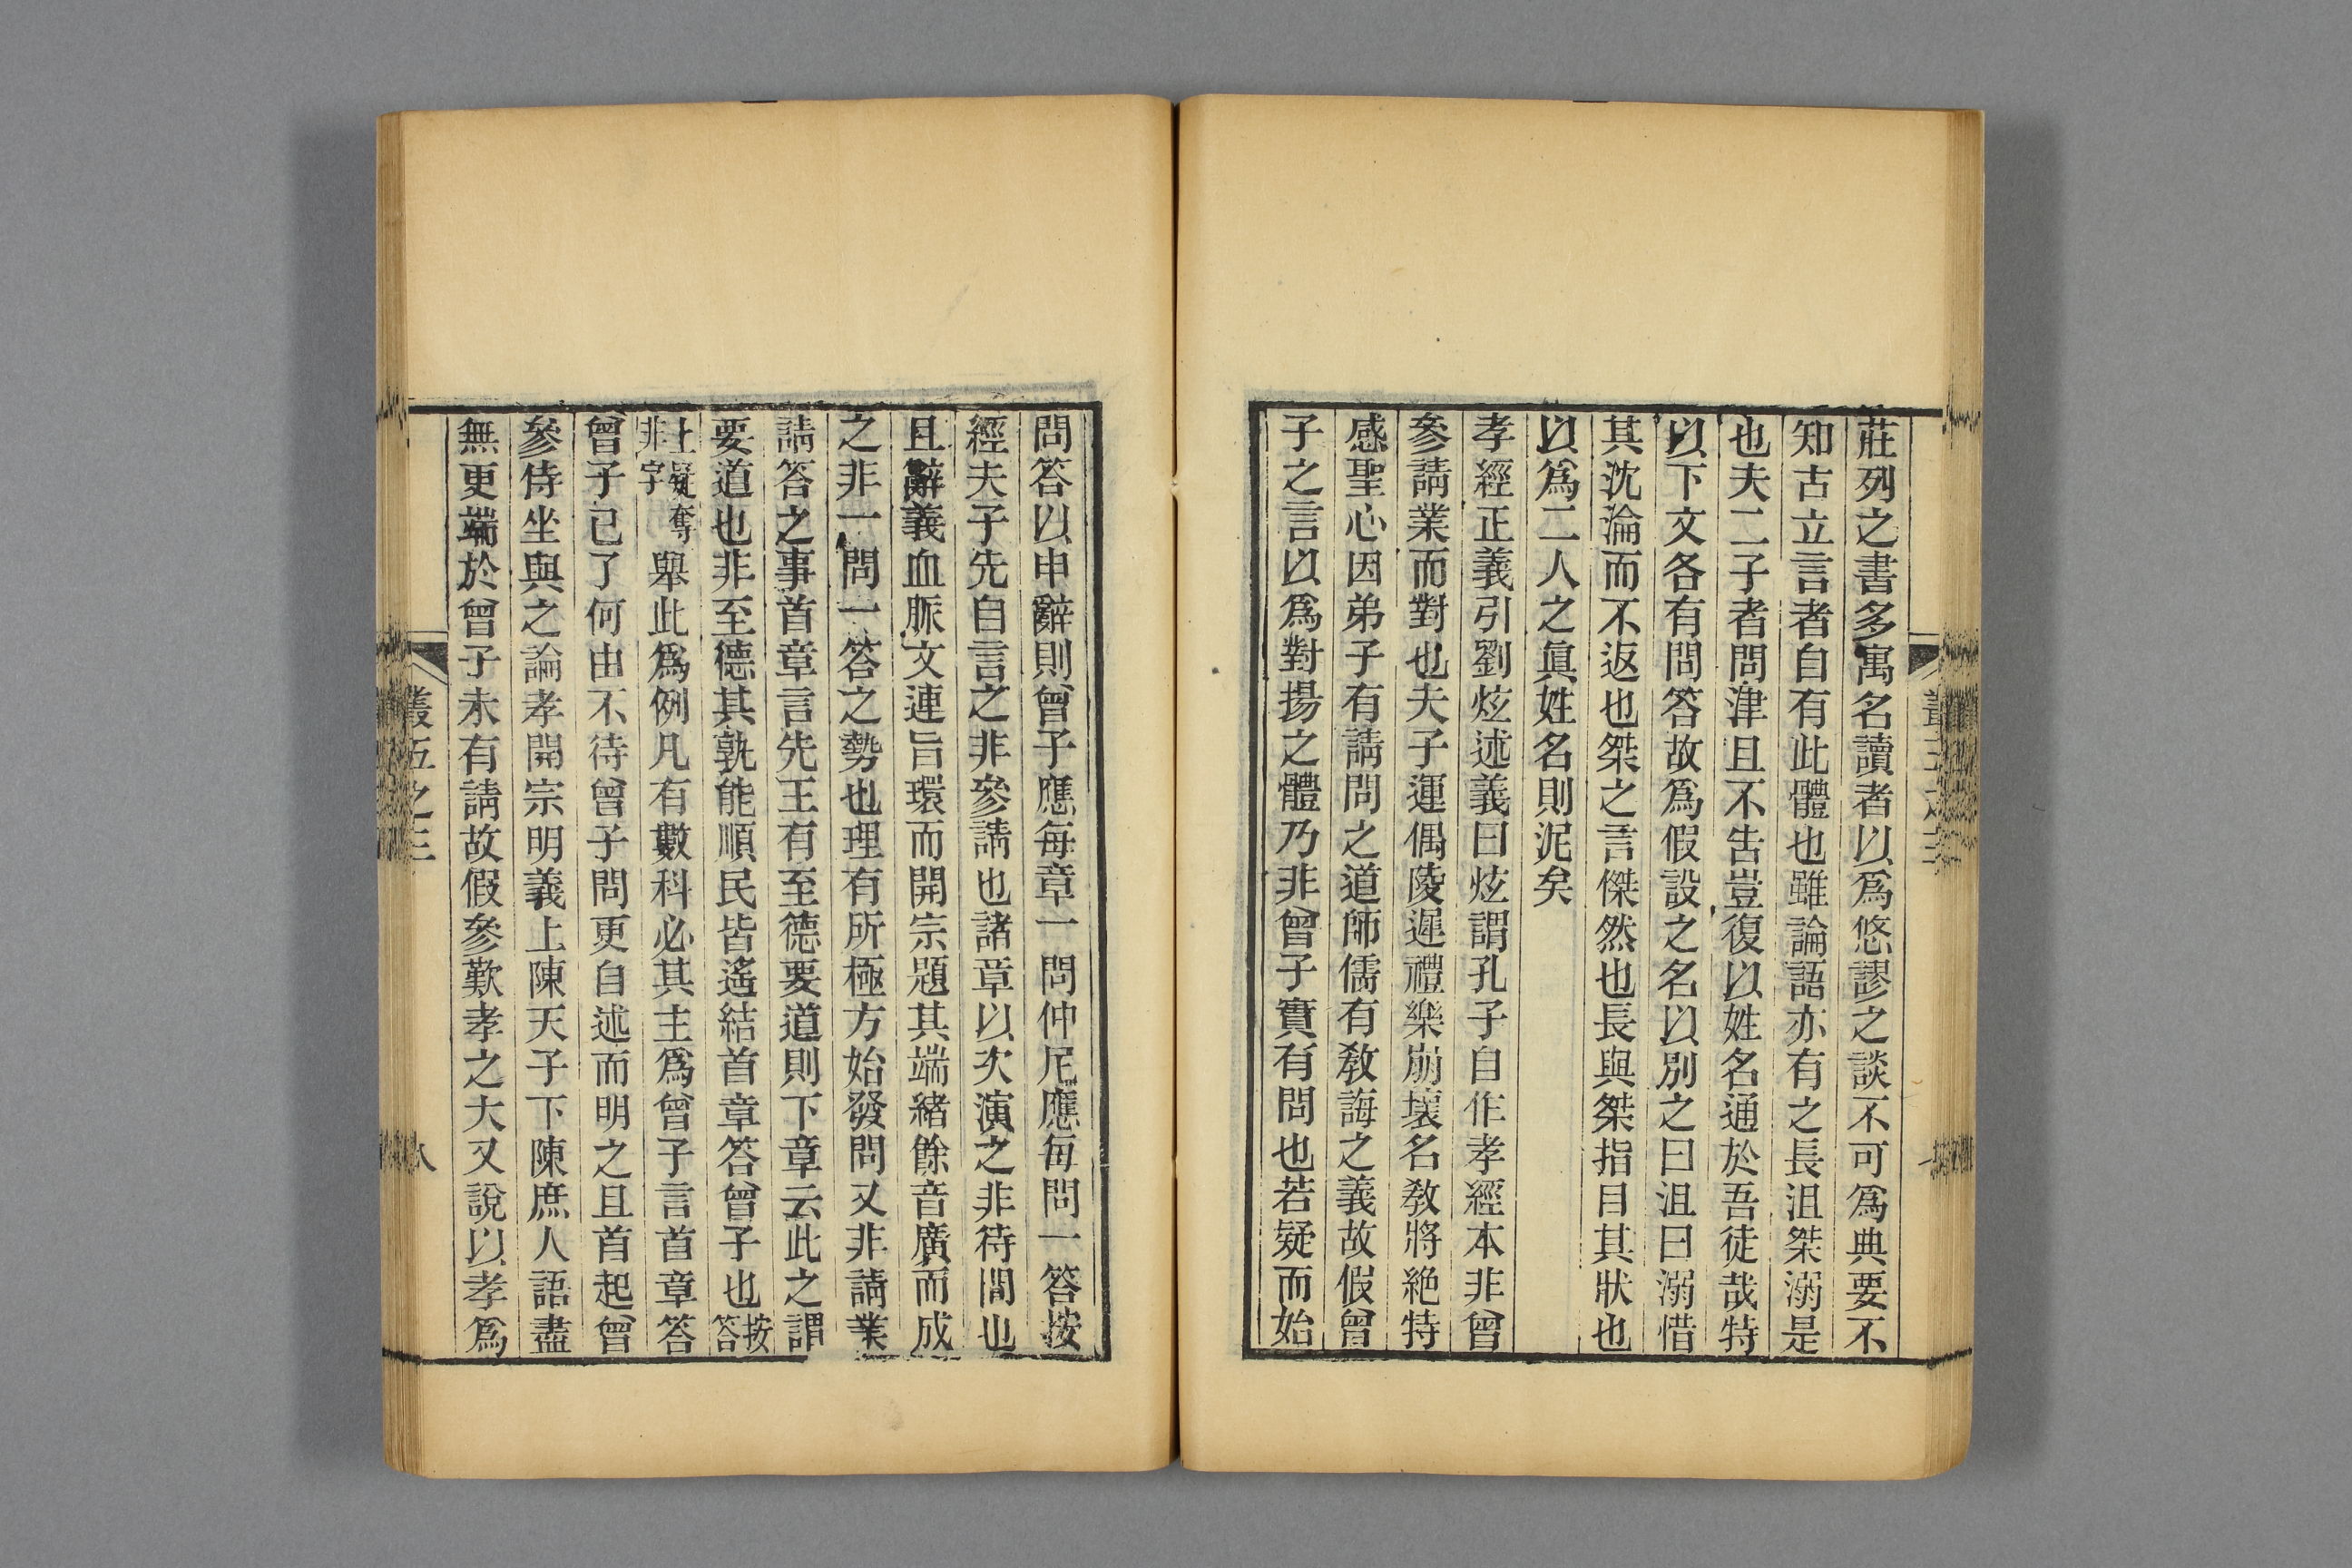 莊列之書多寓名讀者以爲悠謬之談不可爲典要不
知古立言者自有此體也雖論語亦有之長沮桀溺是
也夫二子者問津且不告豈復以姓名通於吾徒哉特
以下文各有問答故爲假設之名以別之曰沮曰溺惜
其沈淪而不返也桀之言傑然也長與桀指目其狀也
以爲二人之眞姓名則泥矣
孝經正義引劉炫述義曰炫謂孔子自作孝經本非曾
參請業而對也夫子運偶陵遲禮樂崩壞名敎將絶特
感聖心因弟子有請問之道師儒有敎誨之義故假曾
子之言以爲對揚之體乃非曾子實有問也若疑而始
問答以申辭則曾子應每章一問仲尼應每問一答按
經夫子先自言之非參請也諸章以次演之非待問也
且辭義血脈文連旨環而開宗題其端緒餘音廣而成
之非一問一答之勢也理有所極方始發問又非請業
請答之事首章言先王有至德要道則下章云此之謂
要道也非至德其孰能順民皆遙結首章答曾子也按答
上疑奪非字舉此爲例凡有數科必其主爲曾子言首章答
曾子已了何由不待曾子問更自述而明之且首起曾
參侍坐與之論孝開宗明義上陳天子下陳庶人語盡
無更端於曾子未有請故假參歎孝之大又說以孝爲
叢五之三
八